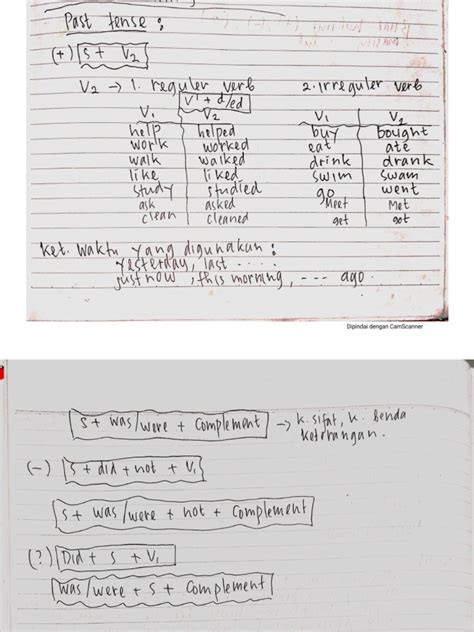 Past tense :
(+) S + V2
V2 → 1. reguler verb 2. irreguler verb
V' + d/ed
V1 V2 V1 V2
help helped buy bought
work worked eat ate
walk walked drink drank
like liked swim swam
study studied go went
ask asked Meet Met
clean cleaned get got
ket. Waktu yang digunakan :
yesterday, last ....
just now, this morning, --- ago.
Dipindai dengan CamScanner
S + was/were + complement → k. sifat, k. benda
keterangan.
(-) S + did + not + V1
S + was/were + not + complement
(?) Did + S + V1
Was/were + S + complement